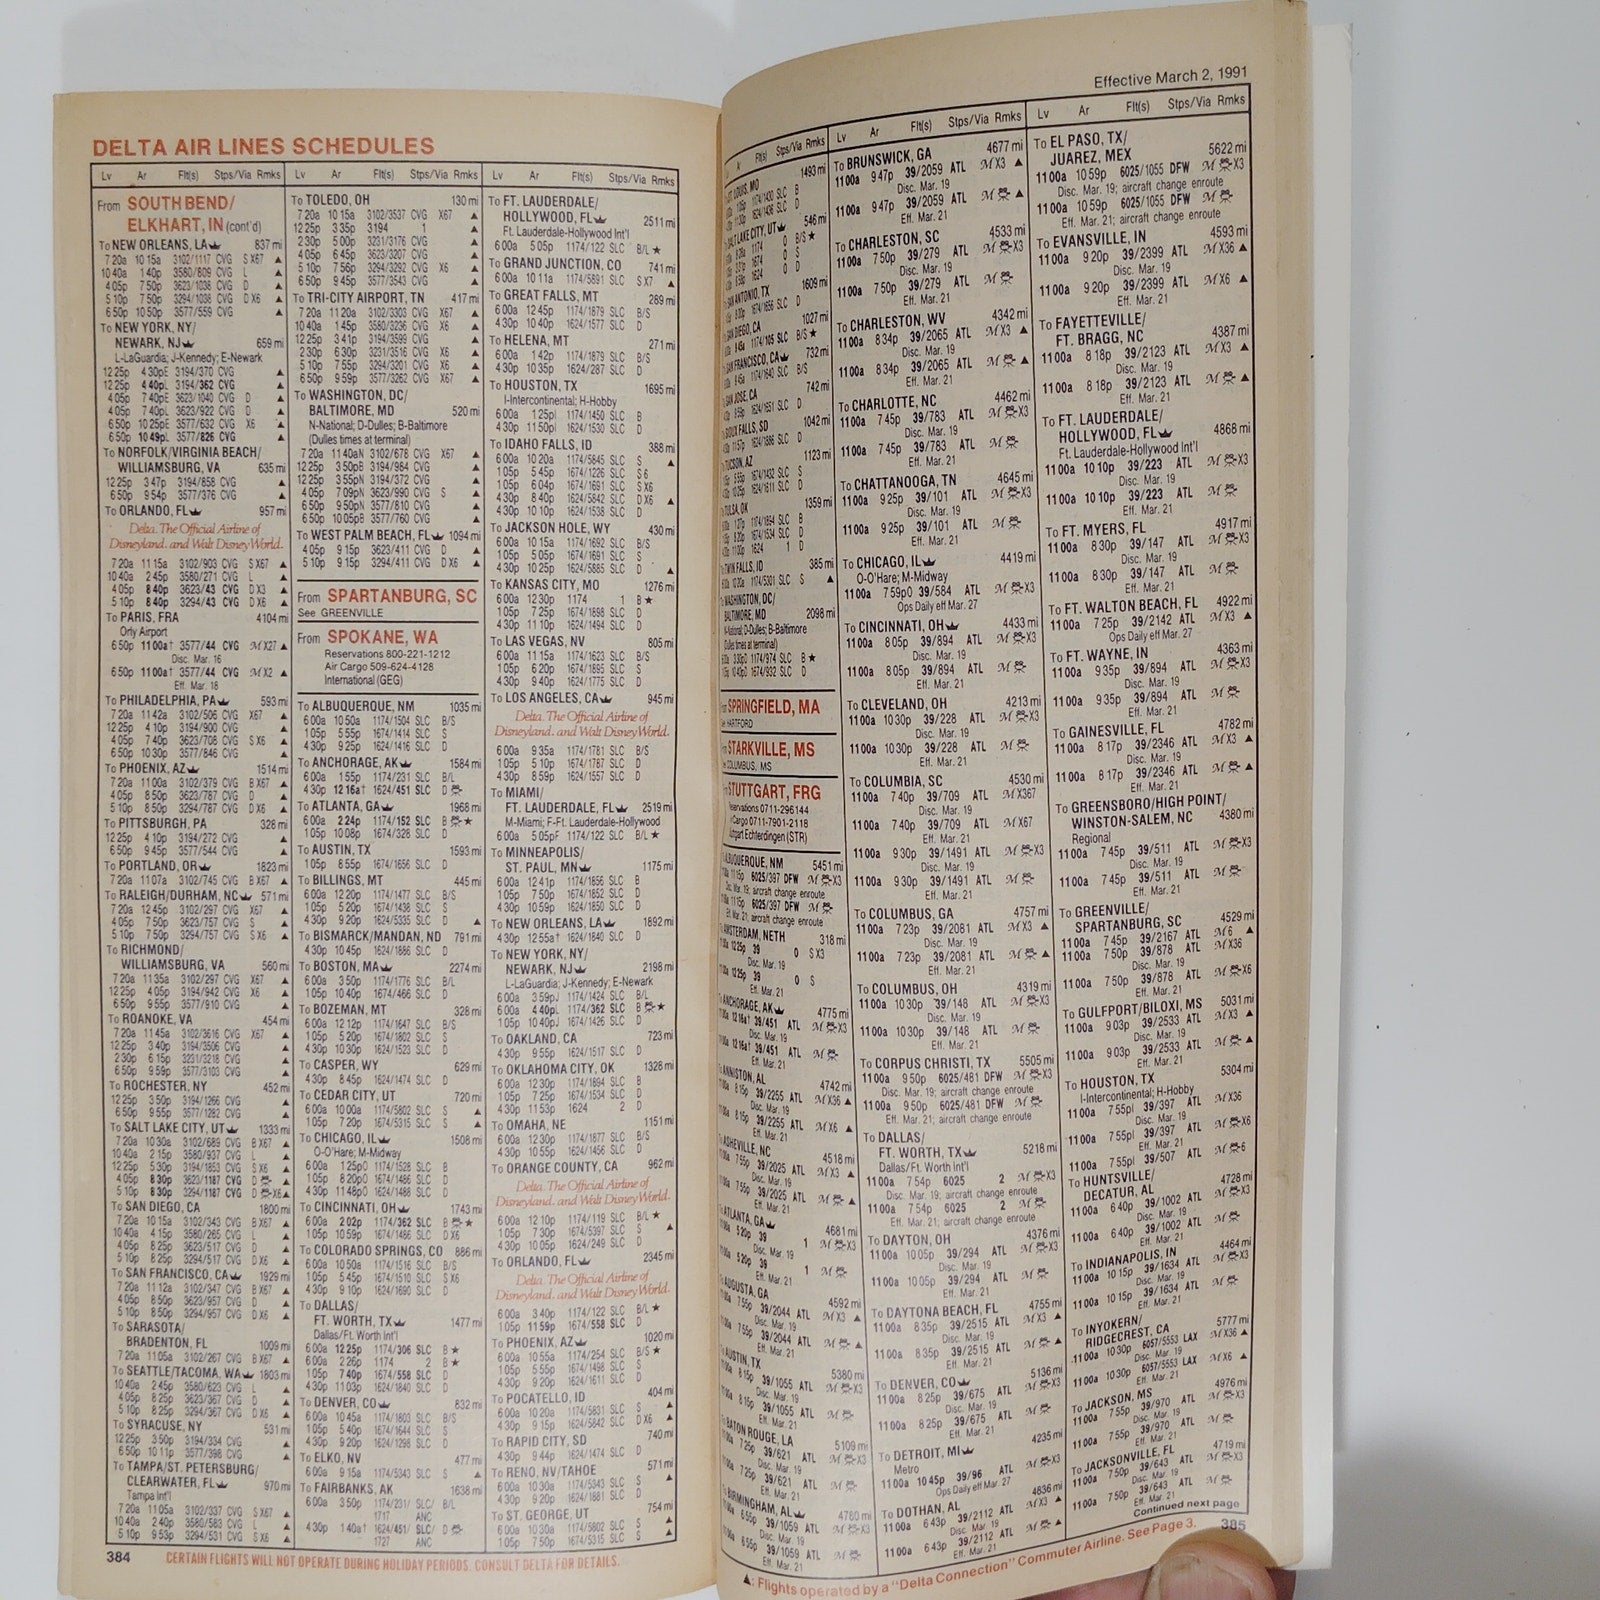 DELTA AIR LINES SCHEDULES
Lv Ar Flt(s) Stps/Via Rmks
From SOUTH BEND/
ELKHART, IN (cont'd)
To NEW ORLEANS, LA 837 mi
7 20a 10 15a 3102/1117 CVG S X67 ▲
10 40a 1 40p 3580/809 CVG L ▲
4 05p 7 50p 3623/1038 CVG D ▲
5 10p 7 50p 3294/1038 CVG D X6 ▲
6 50p 10 50p 3577/559 CVG ▲
To NEW YORK, NY/
NEWARK, NJ 659 mi
L-LaGuardia; J-Kennedy; E-Newark
12 25p 4 30pE 3194/370 CVG ▲
12 25p 4 40pL 3194/362 CVG ▲
4 05p 7 40pE 3623/1040 CVG D ▲
4 05p 7 40pL 3623/922 CVG D ▲
6 50p 10 25pE 3577/632 CVG X6 ▲
6 50p 10 49pL 3577/826 CVG ▲
To NORFOLK/VIRGINIA BEACH/
WILLIAMSBURG, VA 635 mi
12 25p 3 47p 3194/858 CVG ▲
6 50p 9 54p 3577/376 CVG ▲
To ORLANDO, FL 957 mi
Delta. The Official Airline of
Disneyland. and Walt Disney World.
7 20a 11 15a 3102/903 CVG S X67 ▲
10 40a 2 45p 3580/271 CVG L ▲
4 05p 8 40p 3623/43 CVG D X3 ▲
5 10p 8 40p 3294/43 CVG D X6 ▲
To PARIS, FRA 4104 mi
Orly Airport
6 50p 11 00a† 3577/44 CVG M X27 ▲
Disc. Mar. 16
6 50p 11 00a† 3577/44 CVG M X2 ▲
Eff. Mar. 18
To PHILADELPHIA, PA 593 mi
7 20a 11 42a 3102/506 CVG X67 ▲
12 25p 4 10p 3194/900 CVG ▲
4 05p 7 40p 3623/708 CVG S X6 ▲
6 50p 10 30p 3577/846 CVG ▲
To PHOENIX, AZ 1514 mi
7 20a 11 00a 3102/379 CVG B X67 ▲
4 05p 8 50p 3623/787 CVG D ▲
5 10p 8 50p 3294/787 CVG D X6 ▲
To PITTSBURGH, PA 328 mi
12 25p 4 10p 3194/272 CVG ▲
6 50p 9 45p 3577/544 CVG ▲
To PORTLAND, OR 1823 mi
7 20a 11 07a 3102/745 CVG B X67 ▲
To RALEIGH/DURHAM, NC 571 mi
7 20a 12 45p 3102/297 CVG X67 ▲
4 05p 7 50p 3623/757 CVG S ▲
5 10p 7 50p 3294/757 CVG S X6 ▲
To RICHMOND/
WILLIAMSBURG, VA 560 mi
7 20a 11 35a 3102/297 CVG X67 ▲
12 25p 4 05p 3194/942 CVG X6 ▲
6 50p 9 55p 3577/910 CVG ▲
To ROANOKE, VA 454 mi
7 20a 11 45a 3102/3616 CVG X67 ▲
12 25p 3 40p 3194/3506 CVG ▲
2 30p 6 15p 3231/3218 CVG ▲
6 50p 9 59p 3577/3103 CVG ▲
To ROCHESTER, NY 452 mi
12 25p 3 50p 3194/1266 CVG ▲
6 50p 9 55p 3577/1282 CVG ▲
To SALT LAKE CITY, UT 1333 mi
7 20a 10 30a 3102/689 CVG B X67 ▲
10 40a 2 15p 3580/937 CVG L ▲
12 25p 5 30p 3194/1853 CVG S X6 ▲
4 05p 8 30p 3623/1187 CVG D ▲
5 10p 8 30p 3294/1187 CVG D X6 ▲
To SAN DIEGO, CA 1800 mi
7 20a 10 15a 3102/343 CVG B X67 ▲
10 40a 4 15p 3580/265 CVG L ▲
4 05p 8 25p 3623/517 CVG D ▲
5 10p 8 25p 3294/517 CVG D X6 ▲
To SAN FRANCISCO, CA 1929 mi
7 20a 11 12a 3102/347 CVG B X67 ▲
4 05p 8 50p 3623/957 CVG D ▲
5 10p 8 50p 3294/957 CVG D X6 ▲
To SARASOTA/
BRADENTON, FL 1009 mi
7 20a 11 05a 3102/267 CVG B X67 ▲
To SEATTLE/TACOMA, WA 1803 mi
10 40a 2 45p 3580/623 CVG L ▲
4 05p 8 25p 3623/367 CVG D ▲
5 10p 8 25p 3294/367 CVG D X6 ▲
To SYRACUSE, NY 531 mi
12 25p 3 50p 3194/334 CVG ▲
6 50p 10 11p 3577/398 CVG ▲
To TAMPA/ST. PETERSBURG/
CLEARWATER, FL 970 mi
Tampa Int'l
7 20a 11 05a 3102/337 CVG S X67 ▲
10 40a 2 40p 3580/583 CVG L ▲
5 10p 9 53p 3294/531 CVG S X6 ▲
Lv Ar Flt(s) Stps/Via Rmks
To TOLEDO, OH 130 mi
7 20a 10 15a 3102/3537 CVG X67 ▲
12 25p 3 35p 3194 1 ▲
2 30p 5 00p 3231/3176 CVG ▲
4 05p 6 45p 3623/3207 CVG ▲
5 10p 7 56p 3294/3292 CVG X6 ▲
6 50p 9 45p 3577/3543 CVG ▲
To TRI-CITY AIRPORT, TN 417 mi
7 20a 11 20a 3102/3303 CVG X67 ▲
10 40a 1 45p 3580/3236 CVG X6 ▲
12 25p 3 41p 3194/3599 CVG ▲
2 30p 6 30p 3231/3516 CVG X6 ▲
5 10p 7 55p 3294/3201 CVG X6 ▲
6 50p 9 59p 3577/3262 CVG X67 ▲
To WASHINGTON, DC/
BALTIMORE, MD 520 mi
N-National; D-Dulles; B-Baltimore
(Dulles times at terminal)
7 20a 11 40aN 3102/678 CVG X67 ▲
12 25p 3 50pB 3194/984 CVG ▲
12 25p 3 55pN 3194/372 CVG ▲
4 05p 7 09pN 3623/990 CVG S ▲
6 50p 9 50pN 3577/810 CVG ▲
6 50p 10 05pB 3577/760 CVG ▲
To WEST PALM BEACH, FL 1094 mi
4 05p 9 15p 3623/411 CVG D ▲
5 10p 9 15p 3294/411 CVG D X6 ▲
From SPARTANBURG, SC
See GREENVILLE
From SPOKANE, WA
Reservations 800-221-1212
Air Cargo 509-624-4128
International (GEG)
To ALBUQUERQUE, NM 1035 mi
6 00a 10 50a 1174/1504 SLC B/S
1 05p 5 55p 1674/1414 SLC S
4 30p 9 25p 1624/1416 SLC D
To ANCHORAGE, AK 1584 mi
6 00a 1 55p 1174/231 SLC B/L
4 30p 12 16a† 1624/451 SLC D
To ATLANTA, GA 1968 mi
6 00a 2 24p 1174/152 SLC B ★
1 05p 10 08p 1674/328 SLC D
To AUSTIN, TX 1593 mi
1 05p 8 55p 1674/1656 SLC D
To BILLINGS, MT 445 mi
6 00a 12 20p 1174/1477 SLC B/S
1 05p 5 20p 1674/1438 SLC S
4 30p 9 20p 1624/5335 SLC D ▲
To BISMARCK/MANDAN, ND 791 mi
4 30p 10 45p 1624/1886 SLC D
To BOSTON, MA 2274 mi
6 00a 3 50p 1174/1776 SLC B/L
1 05p 10 40p 1674/466 SLC D
To BOZEMAN, MT 328 mi
6 00a 12 12p 1174/1647 SLC B/S
1 05p 5 20p 1674/1802 SLC S
4 30p 10 30p 1624/1523 SLC D
To CASPER, WY 629 mi
4 30p 8 45p 1624/1474 SLC D
To CEDAR CITY, UT 720 mi
6 00a 10 00a 1174/5802 SLC S ▲
1 05p 7 20p 1674/5315 SLC S ▲
To CHICAGO, IL 1508 mi
O-O'Hare; M-Midway
6 00a 1 25pO 1174/1528 SLC B
1 05p 8 20pO 1674/1486 SLC D
4 30p 11 48pO 1624/1488 SLC D
To CINCINNATI, OH 1743 mi
6 00a 2 02p 1174/362 SLC B ★
1 05p 10 59p 1674/1486 SLC D X6
To COLORADO SPRINGS, CO 886 mi
6 00a 10 50a 1174/1516 SLC B/S
1 05p 5 45p 1674/1510 SLC S X6
4 30p 9 10p 1624/1690 SLC D
To DALLAS/
FT. WORTH, TX 1477 mi
Dallas/Ft. Worth Int'l
6 00a 12 25p 1174/306 SLC B ★
6 00a 2 26p 1174 2 B ★
1 05p 7 40p 1674/558 SLC D
4 30p 11 03p 1624/1840 SLC D
To DENVER, CO 832 mi
6 00a 10 45a 1174/1803 SLC B/S
1 05p 5 40p 1674/1644 SLC S
4 30p 9 20p 1624/1298 SLC D
To ELKO, NV 477 mi
6 00a 9 15a 1174/5343 SLC S ▲
To FAIRBANKS, AK 1638 mi
6 00a 3 50p 1174/231/ SLC/ B/L
1717 ANC
4 30p 1 40a† 1624/451/ SLC/ D
1727 ANC
Lv Ar Flt(s) Stps/Via Rmks
To FT. LAUDERDALE/
HOLLYWOOD, FL 2511 mi
Ft. Lauderdale-Hollywood Int'l
6 00a 5 05p 1174/122 SLC B/L ★
To GRAND JUNCTION, CO 741 mi
6 00a 10 11a 1174/5891 SLC S X7 ▲
To GREAT FALLS, MT 289 mi
6 00a 12 45p 1174/1879 SLC B/S
4 30p 10 40p 1624/1577 SLC D
To HELENA, MT 271 mi
6 00a 1 42p 1174/1879 SLC B/S
4 30p 10 35p 1624/287 SLC D
To HOUSTON, TX 1695 mi
I-Intercontinental; H-Hobby
6 00a 1 25pI 1174/1450 SLC B
4 30p 11 50pI 1624/1530 SLC D
To IDAHO FALLS, ID 388 mi
6 00a 10 20a 1174/5845 SLC S ▲
1 05p 5 45p 1674/1226 SLC S 6
1 05p 6 04p 1674/1691 SLC S X6
4 30p 8 40p 1624/5842 SLC D X6 ▲
4 30p 10 10p 1624/1538 SLC D
To JACKSON HOLE, WY 430 mi
6 00a 10 15a 1174/1692 SLC B/S
1 05p 5 05p 1674/1691 SLC S
4 30p 10 25p 1624/5885 SLC D ▲
To KANSAS CITY, MO 1276 mi
6 00a 12 30p 1174 1 B ★
1 05p 7 25p 1674/1698 SLC D
4 30p 11 10p 1624/1494 SLC D
To LAS VEGAS, NV 805 mi
6 00a 11 15a 1174/1623 SLC B/S
1 05p 6 20p 1674/1895 SLC S
4 30p 9 40p 1624/1775 SLC D
To LOS ANGELES, CA 945 mi
Delta. The Official Airline of
Disneyland. and Walt Disney World.
6 00a 9 35a 1174/1781 SLC B/S
1 05p 5 10p 1674/1787 SLC D
4 30p 8 59p 1624/1557 SLC D
To MIAMI/
FT. LAUDERDALE, FL 2519 mi
M-Miami; F-Ft. Lauderdale-Hollywood
6 00a 5 05pF 1174/122 SLC B/L ★
To MINNEAPOLIS/
ST. PAUL, MN 1175 mi
6 00a 12 41p 1174/1856 SLC B
1 05p 7 50p 1674/1852 SLC D
4 30p 10 59p 1624/1850 SLC D
To NEW ORLEANS, LA 1892 mi
4 30p 12 55a† 1624/1840 SLC D
To NEW YORK, NY/
NEWARK, NJ 2198 mi
L-LaGuardia; J-Kennedy; E-Newark
6 00a 3 59pJ 1174/1424 SLC B/L
6 00a 4 40pL 1174/362 SLC B ★
1 05p 10 40pJ 1674/1426 SLC D
To OAKLAND, CA 723 mi
4 30p 9 55p 1624/1517 SLC D
To OKLAHOMA CITY, OK 1328 mi
6 00a 12 30p 1174/1894 SLC B
1 05p 7 25p 1674/1534 SLC D
4 30p 11 53p 1624 2 D
To OMAHA, NE 1151 mi
6 00a 12 30p 1174/1877 SLC B/S
4 30p 10 55p 1624/1456 SLC D
To ORANGE COUNTY, CA 962 mi
Delta. The Official Airline of
Disneyland. and Walt Disney World.
6 00a 12 10p 1174/119 SLC B/L ★
1 05p 7 30p 1674/5397 SLC S ▲
4 30p 10 05p 1624/249 SLC D
To ORLANDO, FL 2345 mi
Delta. The Official Airline of
Disneyland. and Walt Disney World.
6 00a 3 40p 1174/122 SLC B/L ★
1 05p 11 59p 1674/558 SLC D
To PHOENIX, AZ 1020 mi
6 00a 10 55a 1174/254 SLC B/S ★
1 05p 5 55p 1674/1498 SLC S
4 30p 9 20p 1624/1611 SLC D
To POCATELLO, ID 404 mi
6 00a 10 20a 1174/5831 SLC S ▲
4 30p 9 15p 1624/5842 SLC D X6 ▲
To RAPID CITY, SD 740 mi
4 30p 9 44p 1624/1474 SLC D
To RENO, NV/TAHOE 571 mi
6 00a 10 30a 1174/5343 SLC S ▲
4 30p 9 20p 1624/1881 SLC D
To ST. GEORGE, UT 754 mi
6 00a 10 30a 1174/5802 SLC S ▲
1 05p 7 50p 1674/5315 SLC S ▲
384 CERTAIN FLIGHTS WILL NOT OPERATE DURING HOLIDAY PERIODS. CONSULT DELTA FOR DETAILS.
Effective March 2, 1991
Flt(s) Stps/Via Rmks
ST. LOUIS, MO 1493 mi
SALT LAKE CITY, UT 546 mi
SAN ANTONIO, TX 1609 mi
SAN DIEGO, CA 1027 mi
SAN FRANCISCO, CA 732 mi
SAN JOSE, CA 742 mi
SIOUX FALLS, SD 1042 mi
TUCSON, AZ 1123 mi
TULSA, OK 1359 mi
TWIN FALLS, ID 385 mi
WASHINGTON, DC/
BALTIMORE, MD 2098 mi
N-National; D-Dulles; B-Baltimore
(Dulles times at terminal)
SPRINGFIELD, MA
HARTFORD
STARKVILLE, MS
COLUMBUS, MS
STUTTGART, FRG
Reservations 0711-296144
Cargo 0711-7901-2118
Stuttgart Echterdingen (STR)
ALBUQUERQUE, NM 5451 mi
11 15p 6025/397 DFW M X3
Disc. Mar. 19; aircraft change enroute
11 15p 6025/397 DFW M
Eff. Mar. 21; aircraft change enroute
AMSTERDAM, NETH 318 mi
12 25p 39 0 S X3
Disc. Mar. 19
12 25p 39 0 S
Eff. Mar. 21
ANCHORAGE, AK 4775 mi
12 16a† 39/451 ATL M X3
Disc. Mar. 19
12 16a† 39/451 ATL M
Eff. Mar. 21
ANNISTON, AL 4742 mi
8 15p 39/2255 ATL M X36 ▲
Disc. Mar. 19
8 15p 39/2255 ATL M X6 ▲
Eff. Mar. 21
ASHEVILLE, NC 4518 mi
7 55p 39/2025 ATL M X3 ▲
Disc. Mar. 19
7 55p 39/2025 ATL M ▲
Eff. Mar. 21
ATLANTA, GA 4681 mi
5 20p 39 1 M X3
Disc. Mar. 19
5 20p 39 1 M
Eff. Mar. 21
AUGUSTA, GA 4592 mi
7 55p 39/2044 ATL M X3 ▲
Disc. Mar. 19
7 55p 39/2044 ATL M ▲
Eff. Mar. 21
AUSTIN, TX 5380 mi
8 15p 39/1055 ATL M X3
Disc. Mar. 19
8 15p 39/1055 ATL M
Eff. Mar. 21
BATON ROUGE, LA 5109 mi
7 25p 39/621 ATL M X3
Disc. Mar. 19
7 25p 39/621 ATL M
Eff. Mar. 21
BIRMINGHAM, AL 4760 mi
6 55p 39/1059 ATL M X3
Disc. Mar. 19
6 55p 39/1059 ATL M
Eff. Mar. 21
Lv Ar Flt(s) Stps/Via Rmks
To BRUNSWICK, GA 4677 mi
11 00a 9 47p 39/2059 ATL M X3 ▲
Disc. Mar. 19
11 00a 9 47p 39/2059 ATL M ▲
Eff. Mar. 21
To CHARLESTON, SC 4533 mi
11 00a 7 50p 39/279 ATL M X3
Disc. Mar. 19
11 00a 7 50p 39/279 ATL M
Eff. Mar. 21
To CHARLESTON, WV 4342 mi
11 00a 8 34p 39/2065 ATL M X3 ▲
Disc. Mar. 19
11 00a 8 34p 39/2065 ATL M ▲
Eff. Mar. 21
To CHARLOTTE, NC 4462 mi
11 00a 7 45p 39/783 ATL M X3
Disc. Mar. 19
11 00a 7 45p 39/783 ATL M
Eff. Mar. 21
To CHATTANOOGA, TN 4645 mi
11 00a 9 25p 39/101 ATL M X3
Disc. Mar. 19
11 00a 9 25p 39/101 ATL M
Eff. Mar. 21
To CHICAGO, IL 4419 mi
O-O'Hare; M-Midway
11 00a 7 59pO 39/584 ATL M X3
Ops Daily eff Mar. 27
To CINCINNATI, OH 4433 mi
11 00a 8 05p 39/894 ATL M X3
Disc. Mar. 19
11 00a 8 05p 39/894 ATL M
Eff. Mar. 21
To CLEVELAND, OH 4213 mi
11 00a 10 30p 39/228 ATL M X3
Disc. Mar. 19
11 00a 10 30p 39/228 ATL M
Eff. Mar. 21
To COLUMBIA, SC 4530 mi
11 00a 7 40p 39/709 ATL M X367
Disc. Mar. 19
11 00a 7 40p 39/709 ATL M X67
Eff. Mar. 21
11 00a 9 30p 39/1491 ATL M X3
Disc. Mar. 19
11 00a 9 30p 39/1491 ATL M
Eff. Mar. 21
To COLUMBUS, GA 4757 mi
11 00a 7 23p 39/2081 ATL M X3 ▲
Disc. Mar. 19
11 00a 7 23p 39/2081 ATL M ▲
Eff. Mar. 21
To COLUMBUS, OH 4319 mi
11 00a 10 30p 39/148 ATL M X3
Disc. Mar. 19
11 00a 10 30p 39/148 ATL M
Eff. Mar. 21
To CORPUS CHRISTI, TX 5505 mi
11 00a 9 50p 6025/481 DFW M X3
Disc. Mar. 19; aircraft change enroute
11 00a 9 50p 6025/481 DFW M
Eff. Mar. 21; aircraft change enroute
To DALLAS/
FT. WORTH, TX 5218 mi
Dallas/Ft. Worth Int'l
11 00a 7 54p 6025 2 M X3
Disc. Mar. 19; aircraft change enroute
11 00a 7 54p 6025 2 M
Eff. Mar. 21; aircraft change enroute
To DAYTON, OH 4376 mi
11 00a 10 05p 39/294 ATL M X3
Disc. Mar. 19
11 00a 10 05p 39/294 ATL M
Eff. Mar. 21
To DAYTONA BEACH, FL 4755 mi
11 00a 8 35p 39/2515 ATL M X3 ▲
Disc. Mar. 19
11 00a 8 35p 39/2515 ATL M ▲
Eff. Mar. 21
To DENVER, CO 5136 mi
11 00a 8 25p 39/675 ATL M X3
Disc. Mar. 19
11 00a 8 25p 39/675 ATL M
Eff. Mar. 21
To DETROIT, MI 4235 mi
Metro
11 00a 10 45p 39/96 ATL M X3
Ops Daily eff Mar. 27
To DOTHAN, AL 4836 mi
11 00a 6 43p 39/2112 ATL M X3 ▲
Disc. Mar. 19
11 00a 6 43p 39/2112 ATL M ▲
Eff. Mar. 21
Lv Ar Flt(s) Stps/Via Rmks
To EL PASO, TX/
JUAREZ, MEX 5622 mi
11 00a 10 59p 6025/1055 DFW M X3
Disc. Mar. 19; aircraft change enroute
11 00a 10 59p 6025/1055 DFW M
Eff. Mar. 21; aircraft change enroute
To EVANSVILLE, IN 4593 mi
11 00a 9 20p 39/2399 ATL M X36 ▲
Disc. Mar. 19
11 00a 9 20p 39/2399 ATL M X6 ▲
Eff. Mar. 21
To FAYETTEVILLE/
FT. BRAGG, NC 4387 mi
11 00a 8 18p 39/2123 ATL M X3 ▲
Disc. Mar. 19
11 00a 8 18p 39/2123 ATL M ▲
Eff. Mar. 21
To FT. LAUDERDALE/
HOLLYWOOD, FL 4868 mi
Ft. Lauderdale-Hollywood Int'l
11 00a 10 10p 39/223 ATL M X3
Disc. Mar. 19
11 00a 10 10p 39/223 ATL M
Eff. Mar. 21
To FT. MYERS, FL 4917 mi
11 00a 8 30p 39/147 ATL M X3
Disc. Mar. 19
11 00a 8 30p 39/147 ATL M
Eff. Mar. 21
To FT. WALTON BEACH, FL 4922 mi
11 00a 7 25p 39/2142 ATL M X3 ▲
Ops Daily eff Mar. 27
To FT. WAYNE, IN 4363 mi
11 00a 9 35p 39/894 ATL M X3
Disc. Mar. 19
11 00a 9 35p 39/894 ATL M
Eff. Mar. 21
To GAINESVILLE, FL 4782 mi
11 00a 8 17p 39/2346 ATL M X3 ▲
Disc. Mar. 19
11 00a 8 17p 39/2346 ATL M ▲
Eff. Mar. 21
To GREENSBORO/HIGH POINT/
WINSTON-SALEM, NC 4380 mi
Regional
11 00a 7 45p 39/511 ATL M X3
Disc. Mar. 19
11 00a 7 45p 39/511 ATL M
Eff. Mar. 21
To GREENVILLE/
SPARTANBURG, SC 4529 mi
11 00a 7 45p 39/2167 ATL M 6 ▲
11 00a 7 50p 39/878 ATL M X36
Disc. Mar. 19
11 00a 7 50p 39/878 ATL M X6
Eff. Mar. 21
To GULFPORT/BILOXI, MS 5031 mi
11 00a 9 03p 39/2533 ATL M X3 ▲
Disc. Mar. 19
11 00a 9 03p 39/2533 ATL M ▲
Eff. Mar. 21
To HOUSTON, TX 5304 mi
I-Intercontinental; H-Hobby
11 00a 7 55pI 39/397 ATL M X36
Disc. Mar. 19
11 00a 7 55pI 39/397 ATL M X6
Eff. Mar. 21
11 00a 7 55pI 39/507 ATL M 6
To HUNTSVILLE/
DECATUR, AL 4728 mi
11 00a 6 40p 39/1002 ATL M X3
Disc. Mar. 19
11 00a 6 40p 39/1002 ATL M
Eff. Mar. 21
To INDIANAPOLIS, IN 4464 mi
11 00a 10 15p 39/1634 ATL M X3
Disc. Mar. 19
11 00a 10 15p 39/1634 ATL M
Eff. Mar. 21
To INYOKERN/
RIDGECREST, CA 5777 mi
11 00a 10 30p 6057/5553 LAX M X36 ▲
Disc. Mar. 19
11 00a 10 30p 6057/5553 LAX M X6 ▲
Eff. Mar. 21
To JACKSON, MS 4976 mi
11 00a 7 55p 39/970 ATL M X3
Disc. Mar. 19
11 00a 7 55p 39/970 ATL M
Eff. Mar. 21
To JACKSONVILLE, FL 4719 mi
11 00a 7 50p 39/643 ATL M X3
Disc. Mar. 19
11 00a 7 50p 39/643 ATL M
Eff. Mar. 21
Continued next page
▲: Flights operated by a "Delta Connection" Commuter Airline. See Page 3. 385